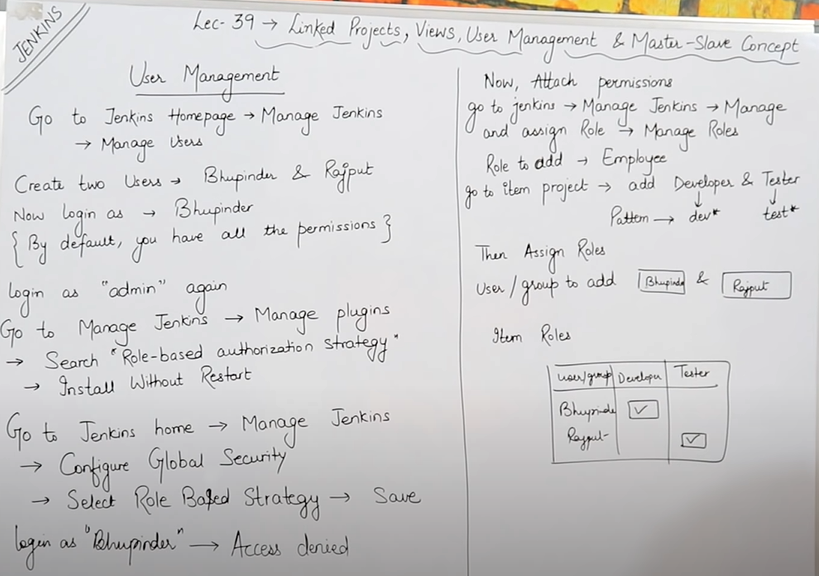 JENKINS
Lec-39 → Linked Projects, Views, User Management & Master-Slave Concept
User Management
Go to Jenkins Homepage → Manage Jenkins
→ Manage Users
Create two Users → Bhupinder & Rajput
Now login as → Bhupinder
{ By default, you have all the permissions }
login as "admin" again
Go to Manage Jenkins → Manage plugins
→ Search "Role-based authorization strategy"
→ Install Without Restart
Go to Jenkins home → Manage Jenkins
→ Configure Global Security
→ Select Role Based Strategy → Save
login as "Bhupinder" → Access denied
Now, Attach permissions
go to jenkins → Manage Jenkins → Manage
and assign Role → Manage Roles
Role to add → Employee
go to item project → add Developer & Tester
↓ ↓
Pattern → dev* test*
Then Assign Roles
User/group to add Bhupinde & Rajput
Item Roles
user/group Developer Tester
Bhupinde ✓
Rajput ✓